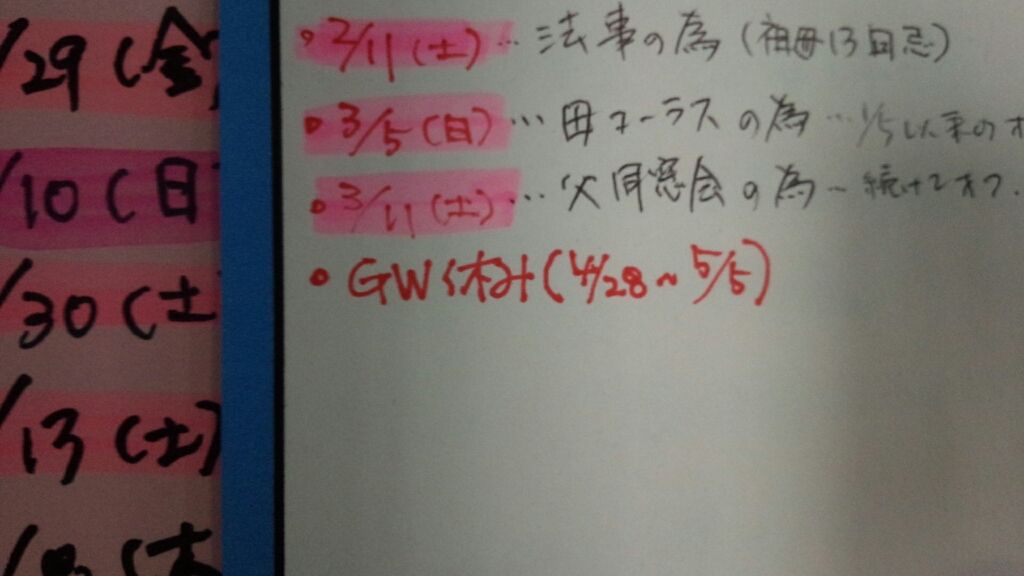 /29(金)
/10(日
/30(土
/13(土)
(土
・2/11(土)…法事の為(祖母13回忌)
・3/5(日)…母コーラスの為…1/5以来のオ
・3/11(土)…父同窓会の為〜続けてオフ.
・GW休み(4/28〜5/5)